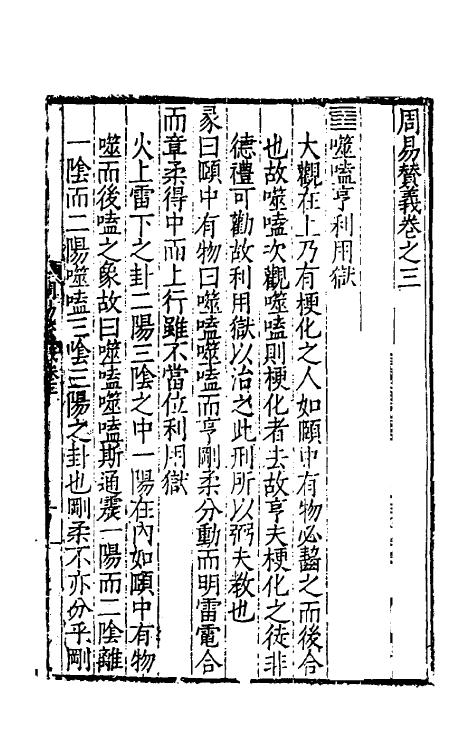 周易贊義卷之三
䷔噬嗑亨利用獄
大觀在上乃有梗化之人如頤中有物必齧之而後合
也故噬嗑次觀噬嗑則梗化者去故亨夫梗化之徒非
德禮可勸故利用獄以治之此刑所以弼夫教也
彖曰頤中有物曰噬嗑噬嗑而亨剛柔分動而明雷電合
而章柔得中而上行雖不當位利用獄
火上雷下之卦二陽三陰之中一陽在內如頤中有物
噬而後嗑之象故曰噬嗑噬嗑斯通震一陽而二陰離
一陰而二陽噬嗑三陰三陽之卦也剛柔不亦分乎剛